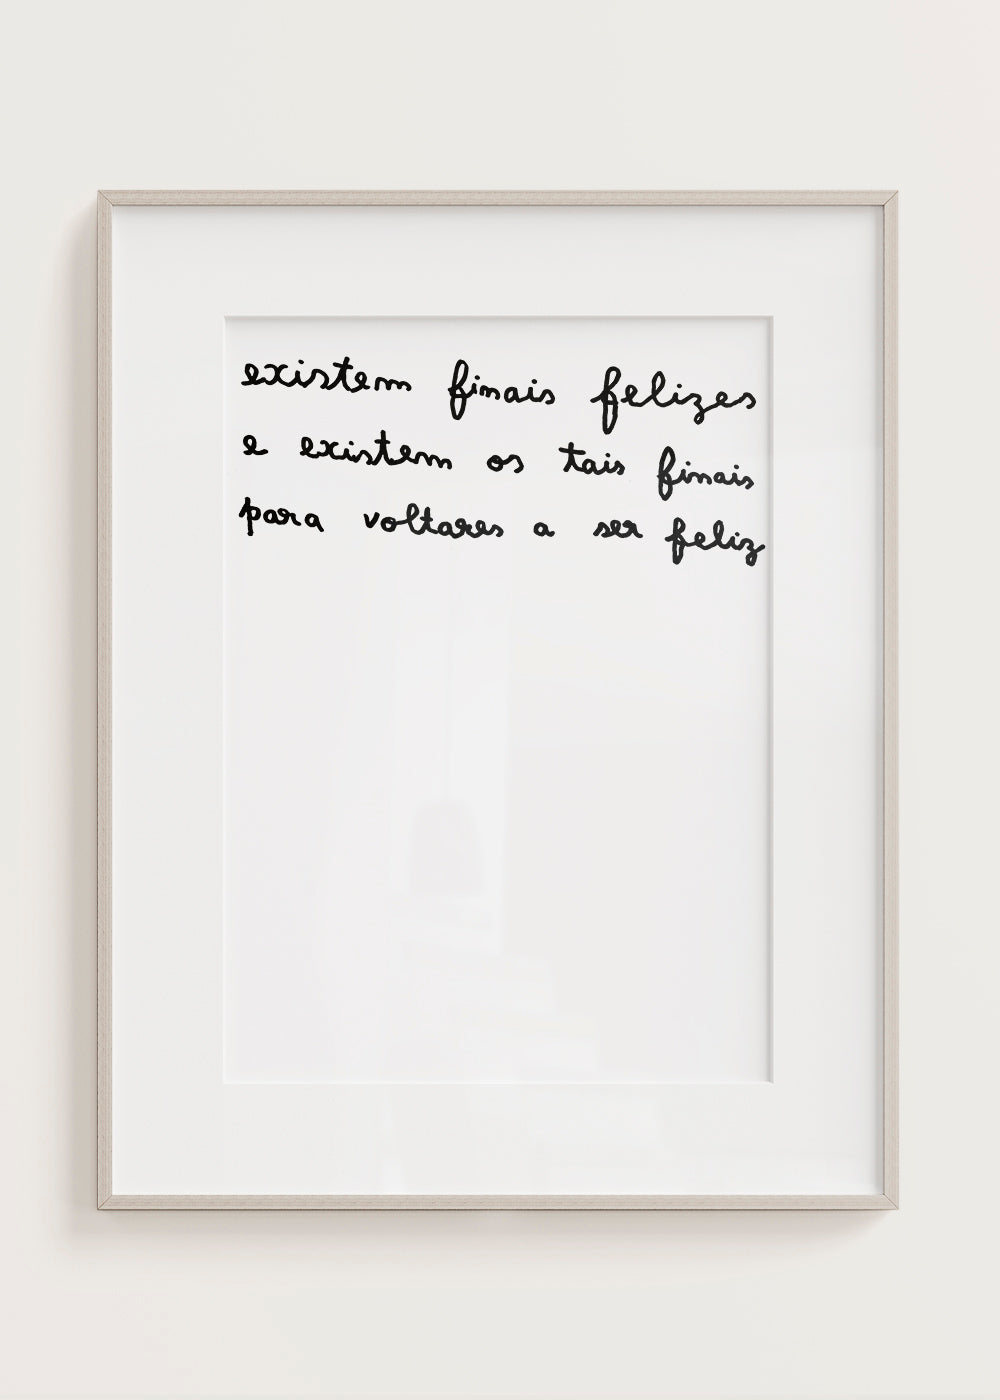 existem finais felizes
e existem os tais finais
para voltares a ser feliz